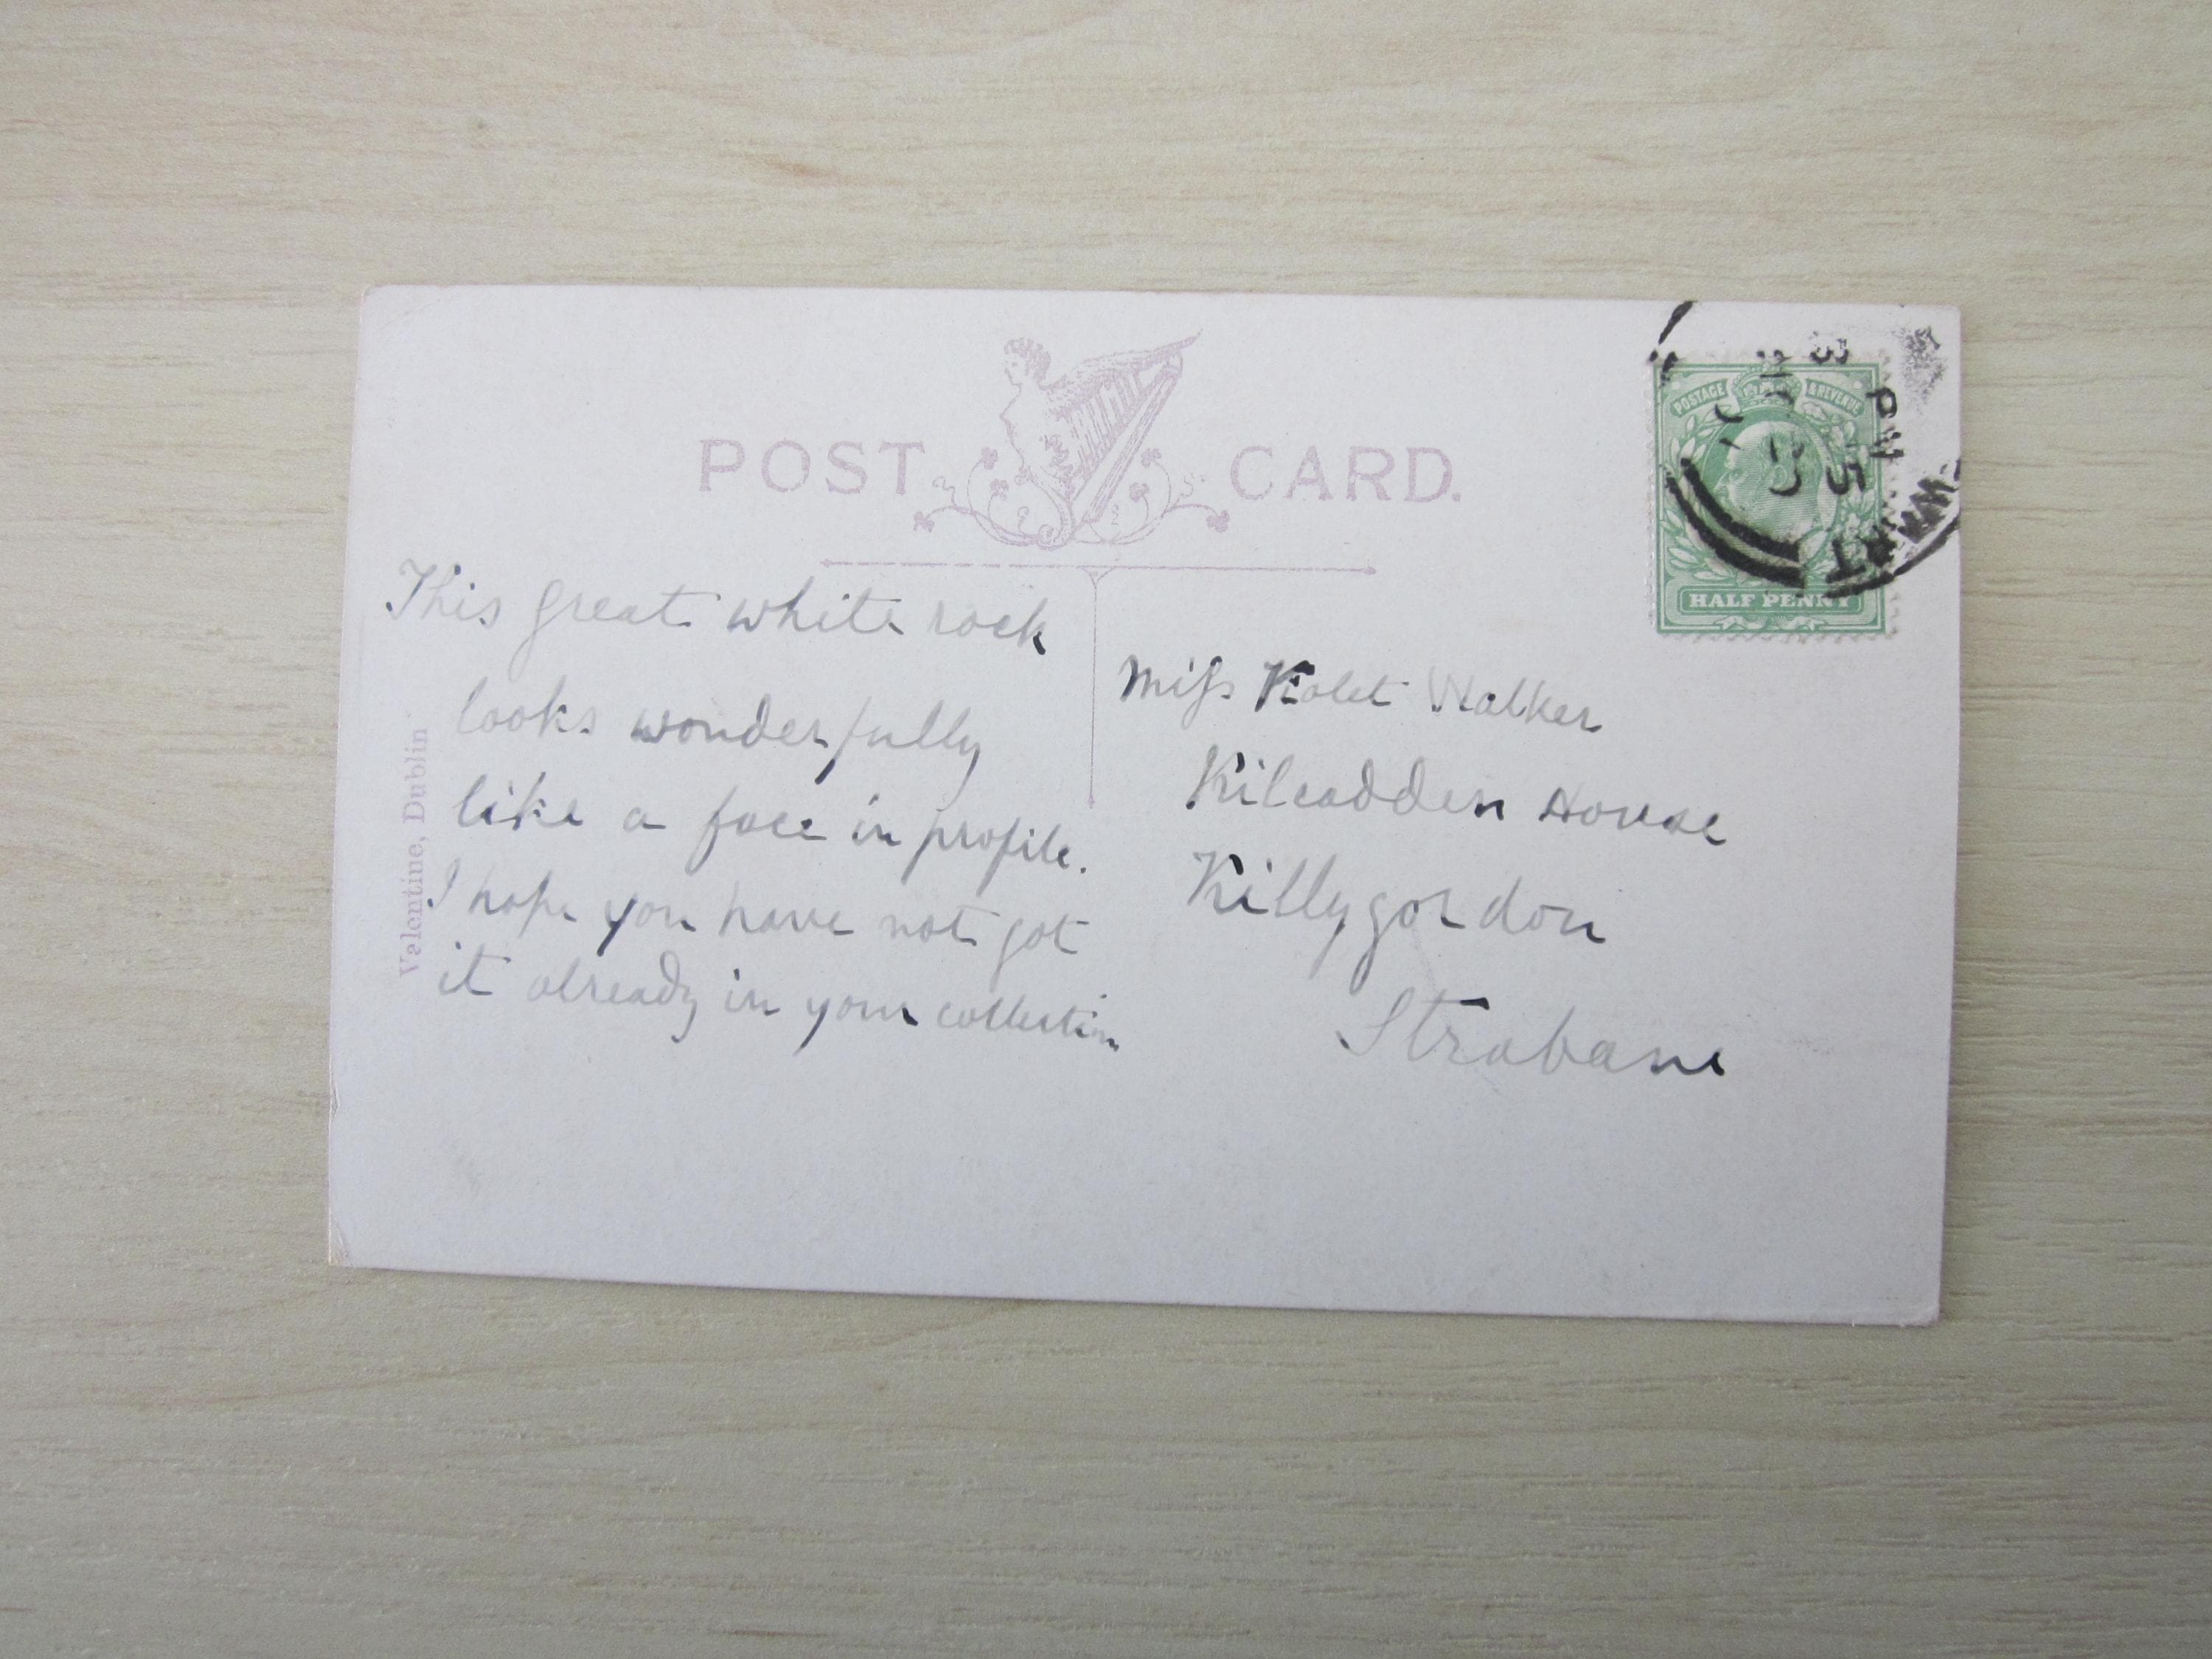 POST CARD.
Valentine, Dublin
This great white rock
looks wonderfully
like a face in profile.
I hope you have not got
it already in your collection
Miss Violet Walker
Kilcadden House
Killygordon
Strabane
POSTAGE & REVENUE
HALF PENNY